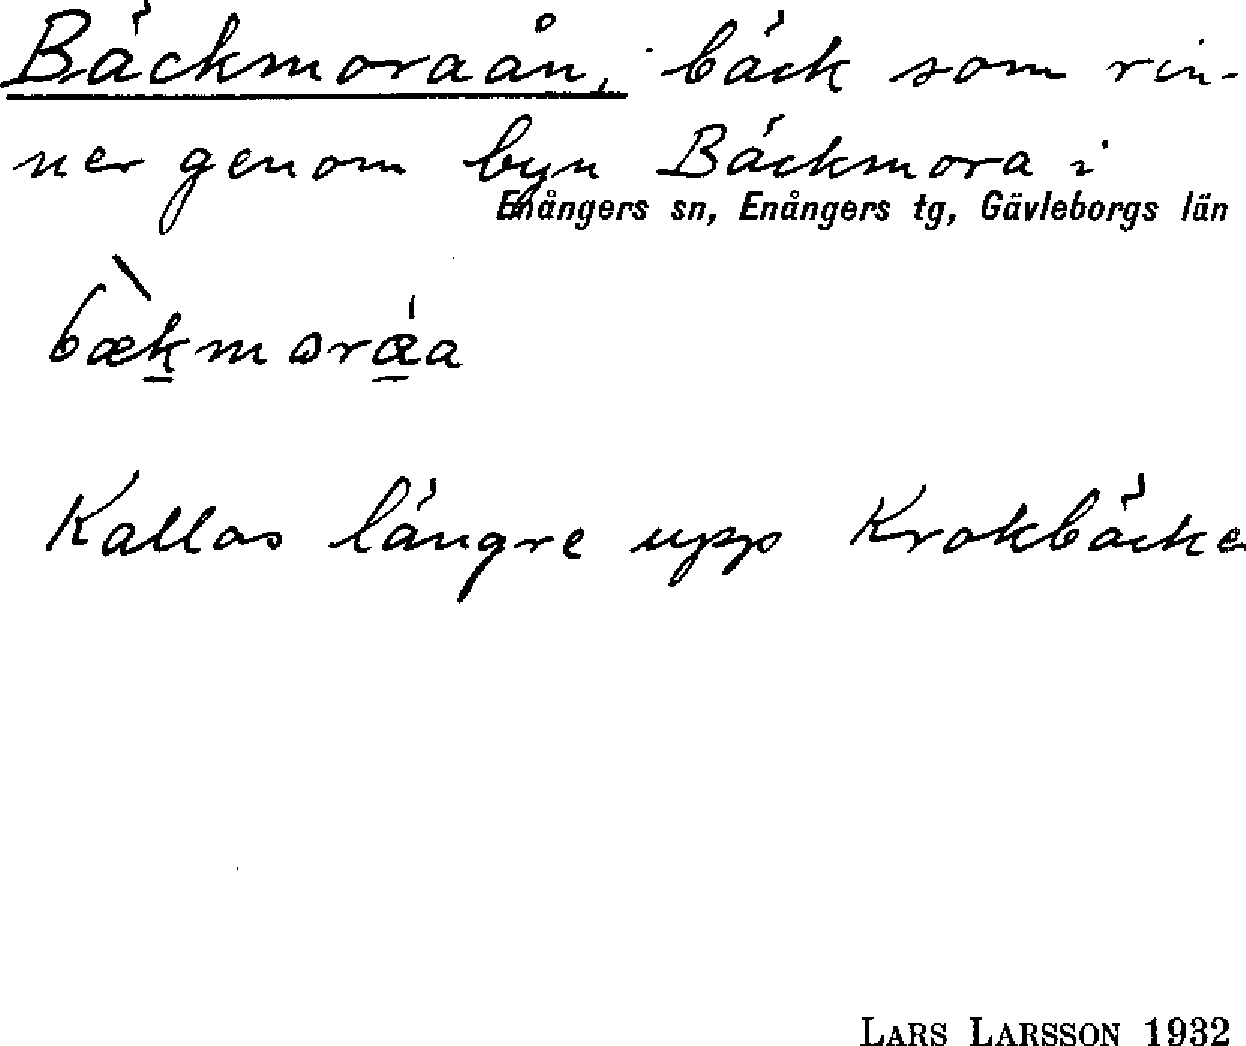 Bäckmoraån, bäck som rin-
ner genom byn Bäckmora i
Enångers sn, Enångers tg, Gävleborgs län
Kallas längre upp Krokbäcke
LARS LARSSON 1932